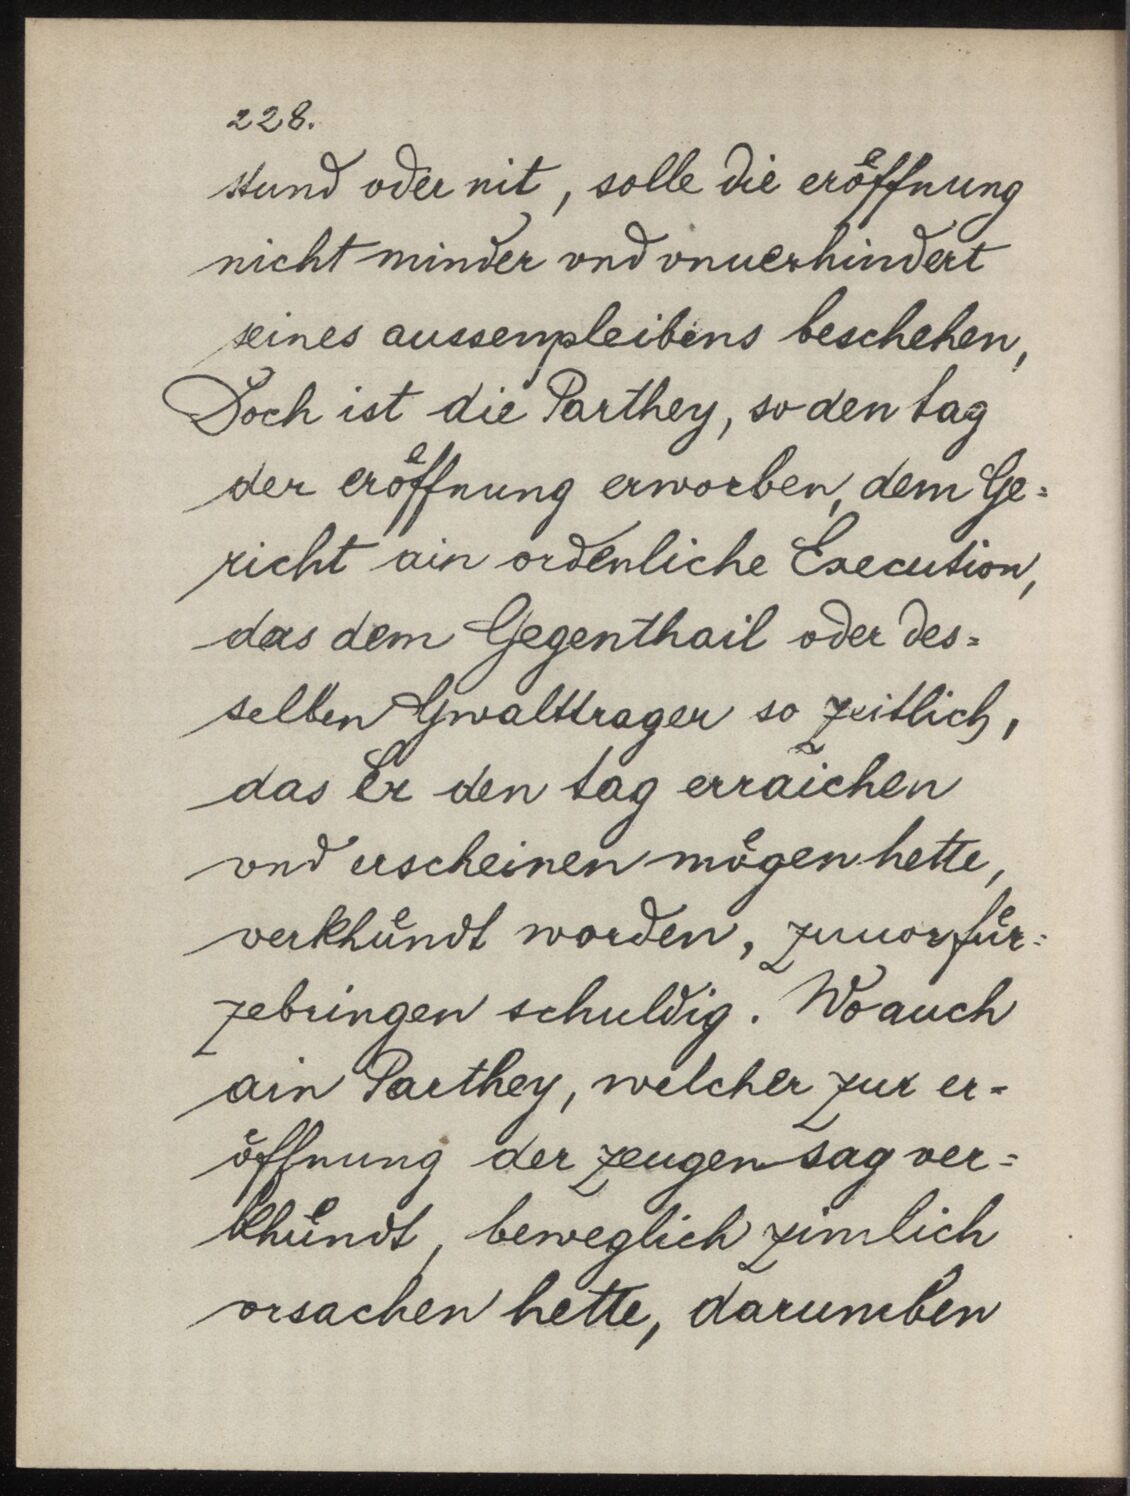 228.
stund oder nit, solle die eröffnung
nicht minder vnd vnuerhindert
seines aussenpleibens beschehen,
Doch ist die Parthey, so den tag
der eröffnung erworben, dem Ge=
richt ain ordenliche Execution,
das dem Gegenthail oder des=
selben Gwalttrager so zeitlich,
das Er den tag erraichen
vnd erscheinen mögen hette,
verkhündt worden, zuuor für=
zebringen schuldig. Wo auch
ain Parthey, welcher zur er=
öffnung der zeugen sag ver=
khündt, beweglich zimlich
vrsachen hette, darumben